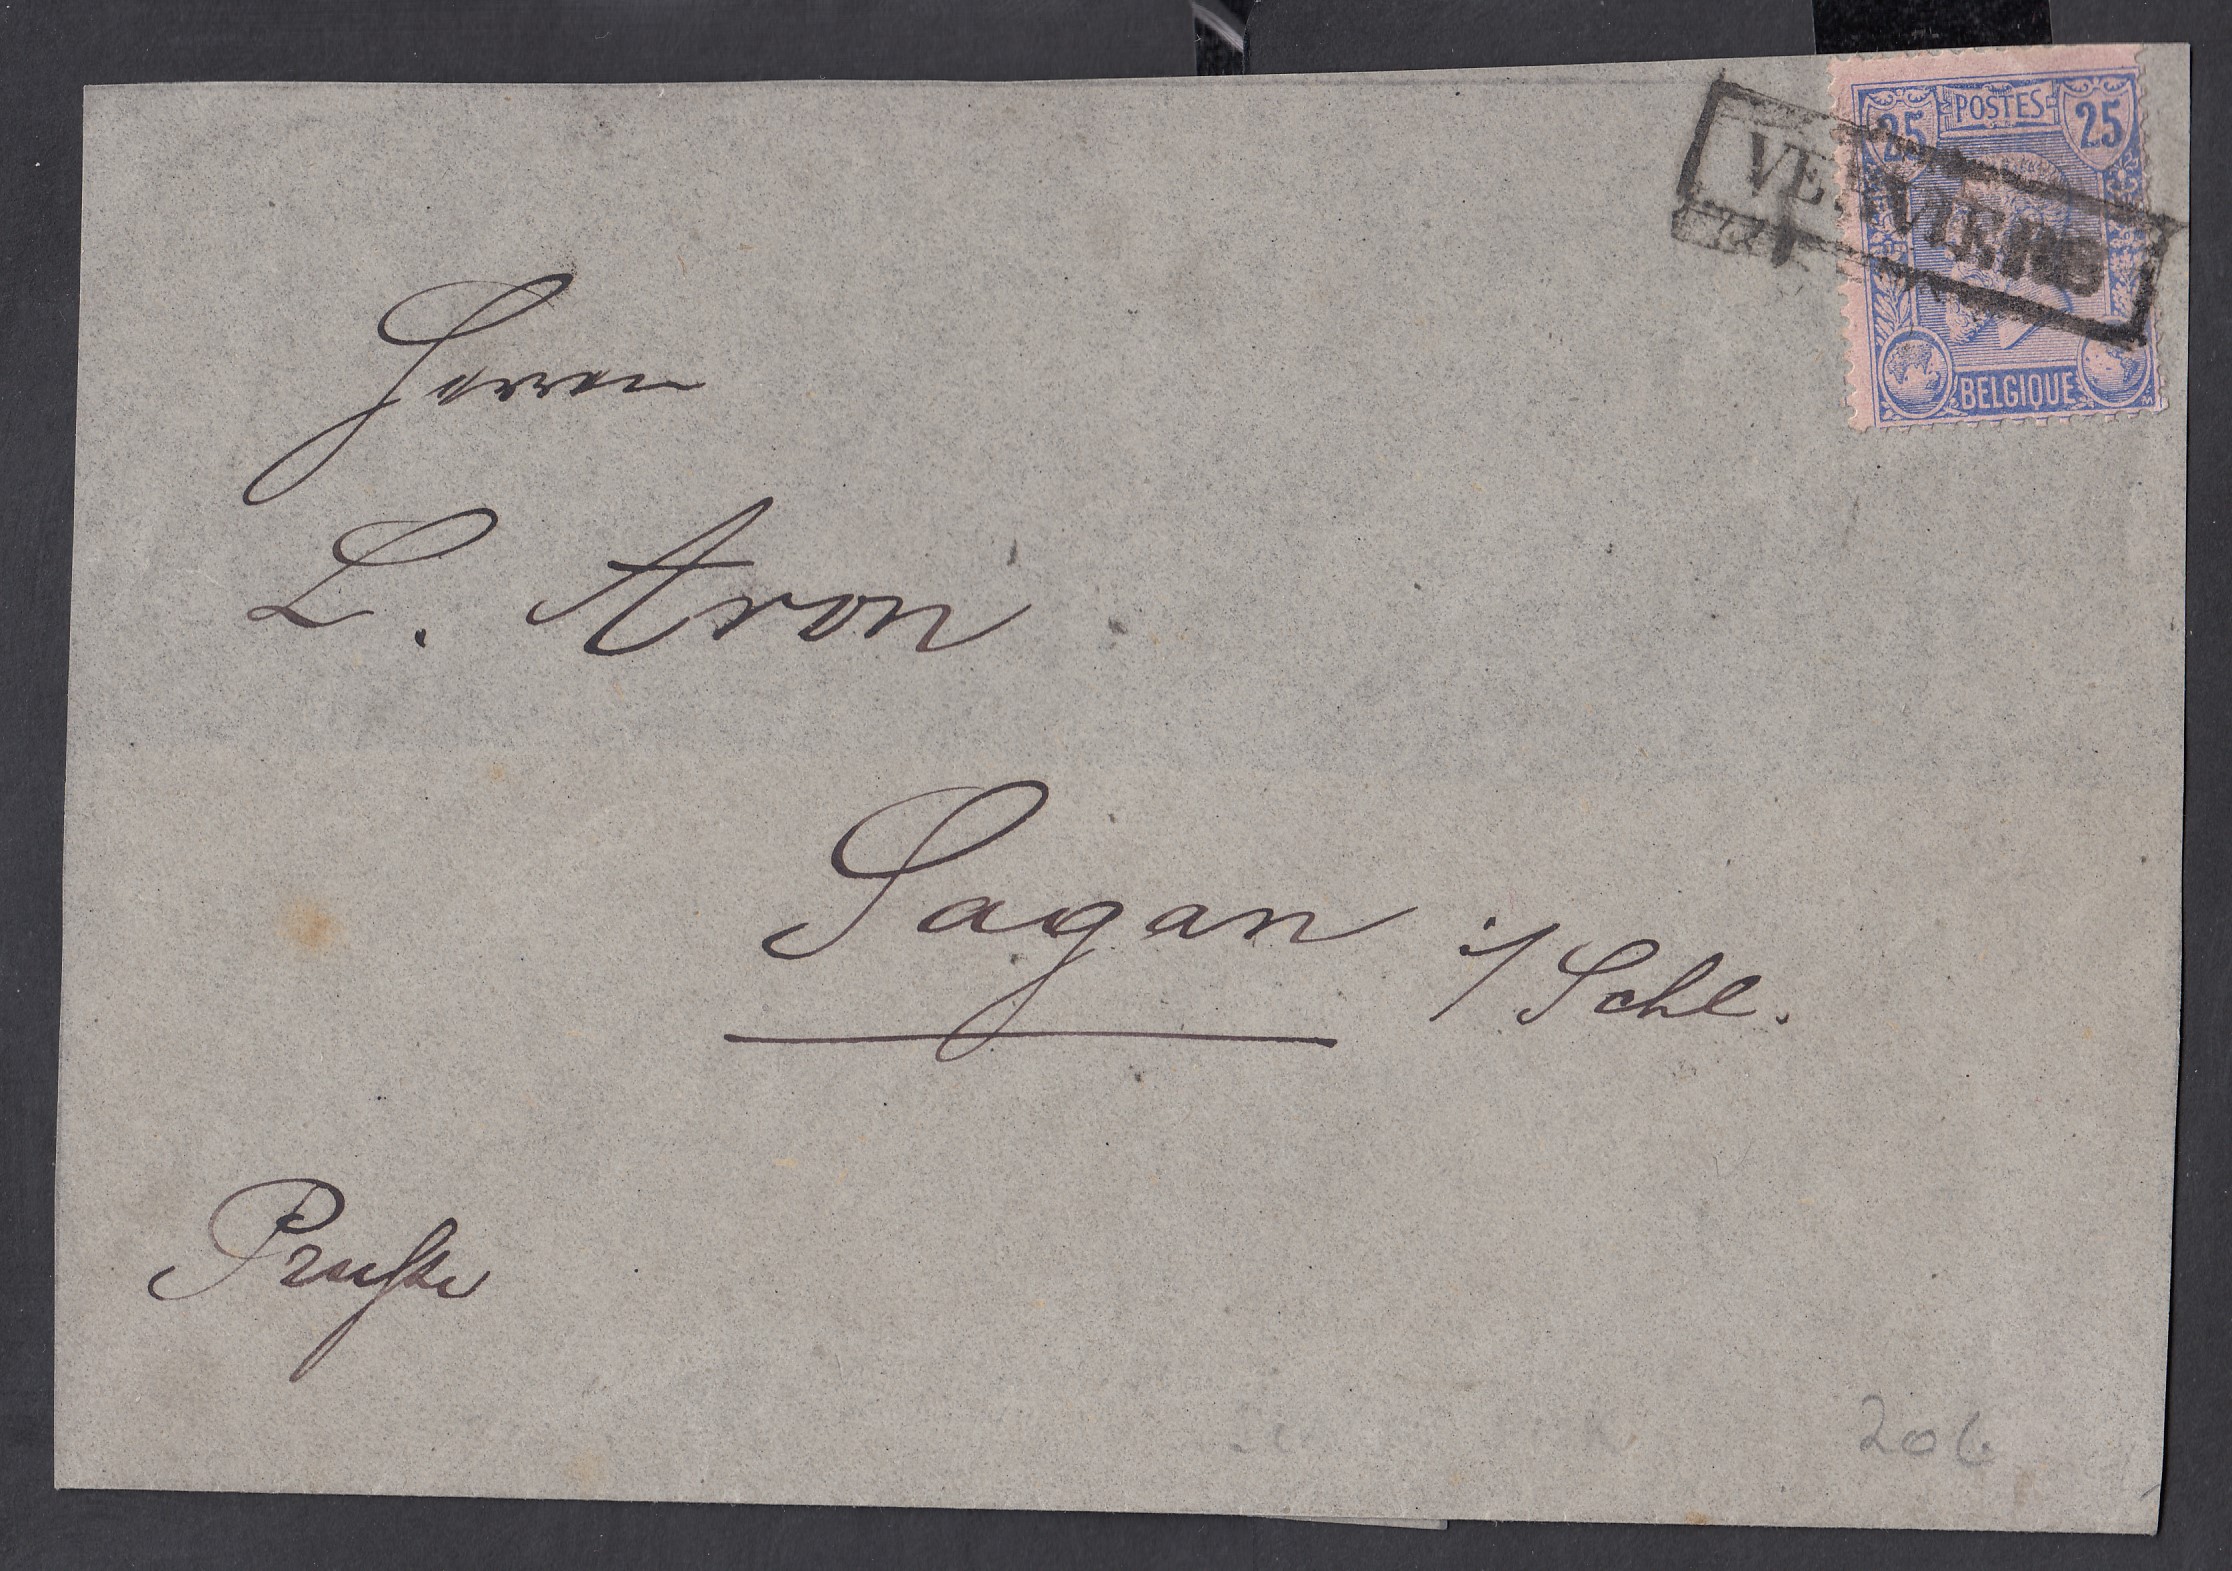 25 POSTES 25
VERVIERS
BELGIQUE
Herrn
L. Aron
Sagan i/Schl.
Prusse
206